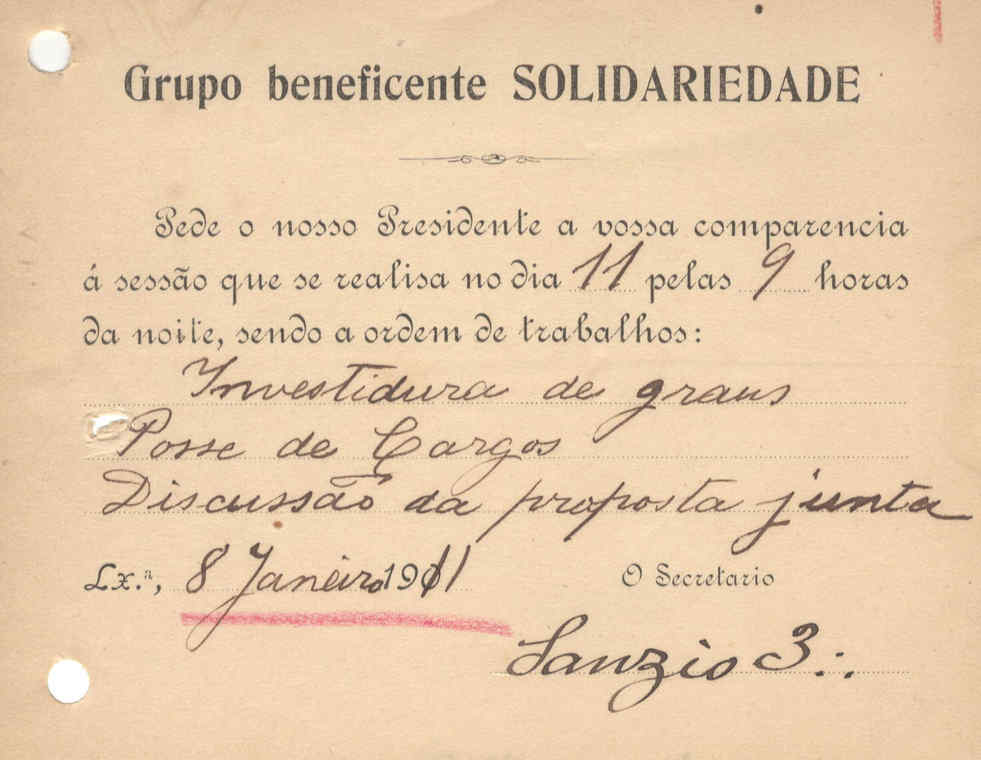 Grupo beneficente SOLIDARIEDADE
Pede o nosso Presidente a vossa comparencia
á sessão que se realisa no dia 11 pelas 9 horas
da noite, sendo a ordem de trabalhos:
Investidura de graus
Posse de Cargos
Discussão da proposta junta
Lx.ª, 8 Janeiro 1911
O Secretario
Sanzio 3∴